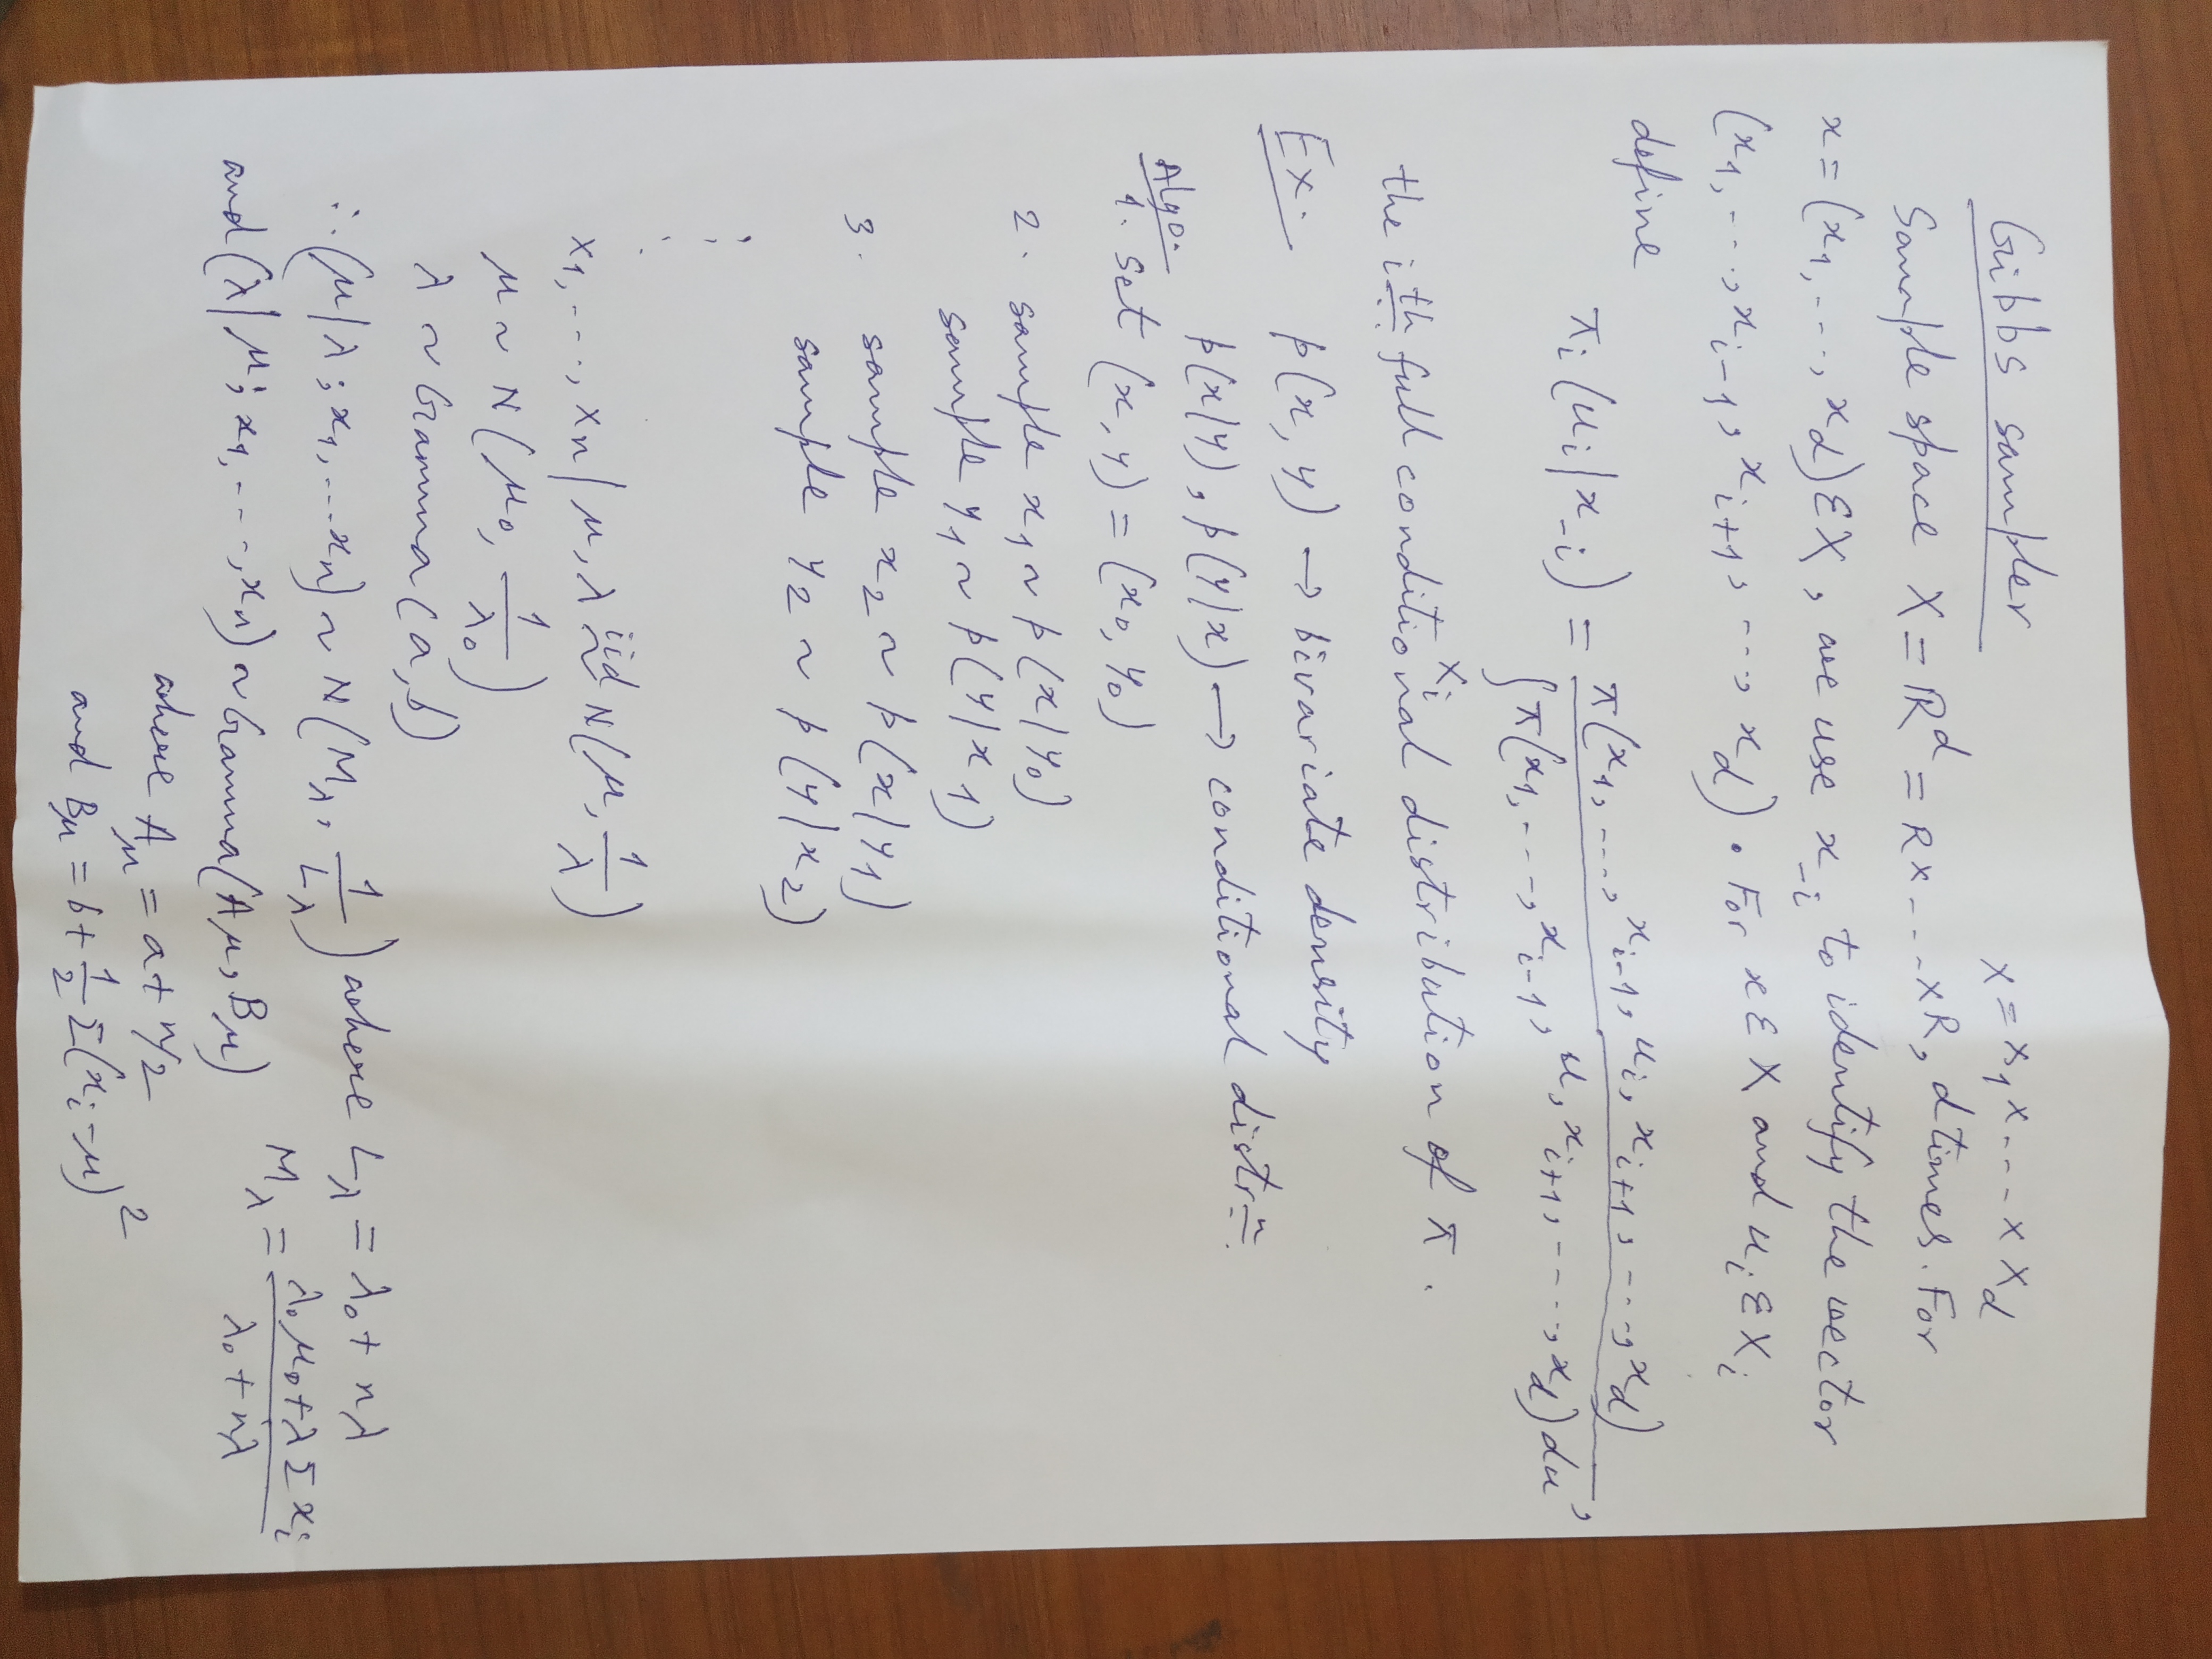 Gibbs sampler
X = X₁ x --- x X_d
Sample space X = ℝ^d = R x --- x R, d times. For
x = (x₁, ---, x_d) ε X, we use x_-i to identify the vector
(x₁, ---, x_i-1, x_i+1, ---, x_d). For x ε X and u_i ε X_i
define
π_i (u_i | x_-i) = π(x₁, ---, x_i-1, u_i, x_i+1, ---, x_d) / ∫_X_i π(x₁, ---, x_i-1, u, x_i+1, ---, x_d) du ,
the i th full conditional distribution of π.
Ex. p(x, y) → bivariate density
p(x|y), p(y|x) → conditional distrn.
Algo.
1. set (x, y) = (x₀, y₀)
2. sample x₁ ~ p(x|y₀)
sample y₁ ~ p(y|x₁)
3. sample x₂ ~ p(x|y₁)
sample y₂ ~ p(y|x₂)
⋮
x₁, ---, x_n | μ, λ iid~ N(μ, 1/λ)
μ ~ N(μ₀, 1/λ₀)
λ ~ Gamma (a, b)
∴ (μ | λ; x₁, --- x_n) ~ N(M_λ, 1/L_λ) where L_λ = λ₀ + nλ
M_λ = λ₀μ₀ + λ Σ x_i / λ₀ + nλ
and (λ | μ; x₁, ---, x_n) ~ Gamma(A_μ, B_μ)
where A_μ = a + n/2
and B_μ = b + 1/2 Σ(x_i - μ)²